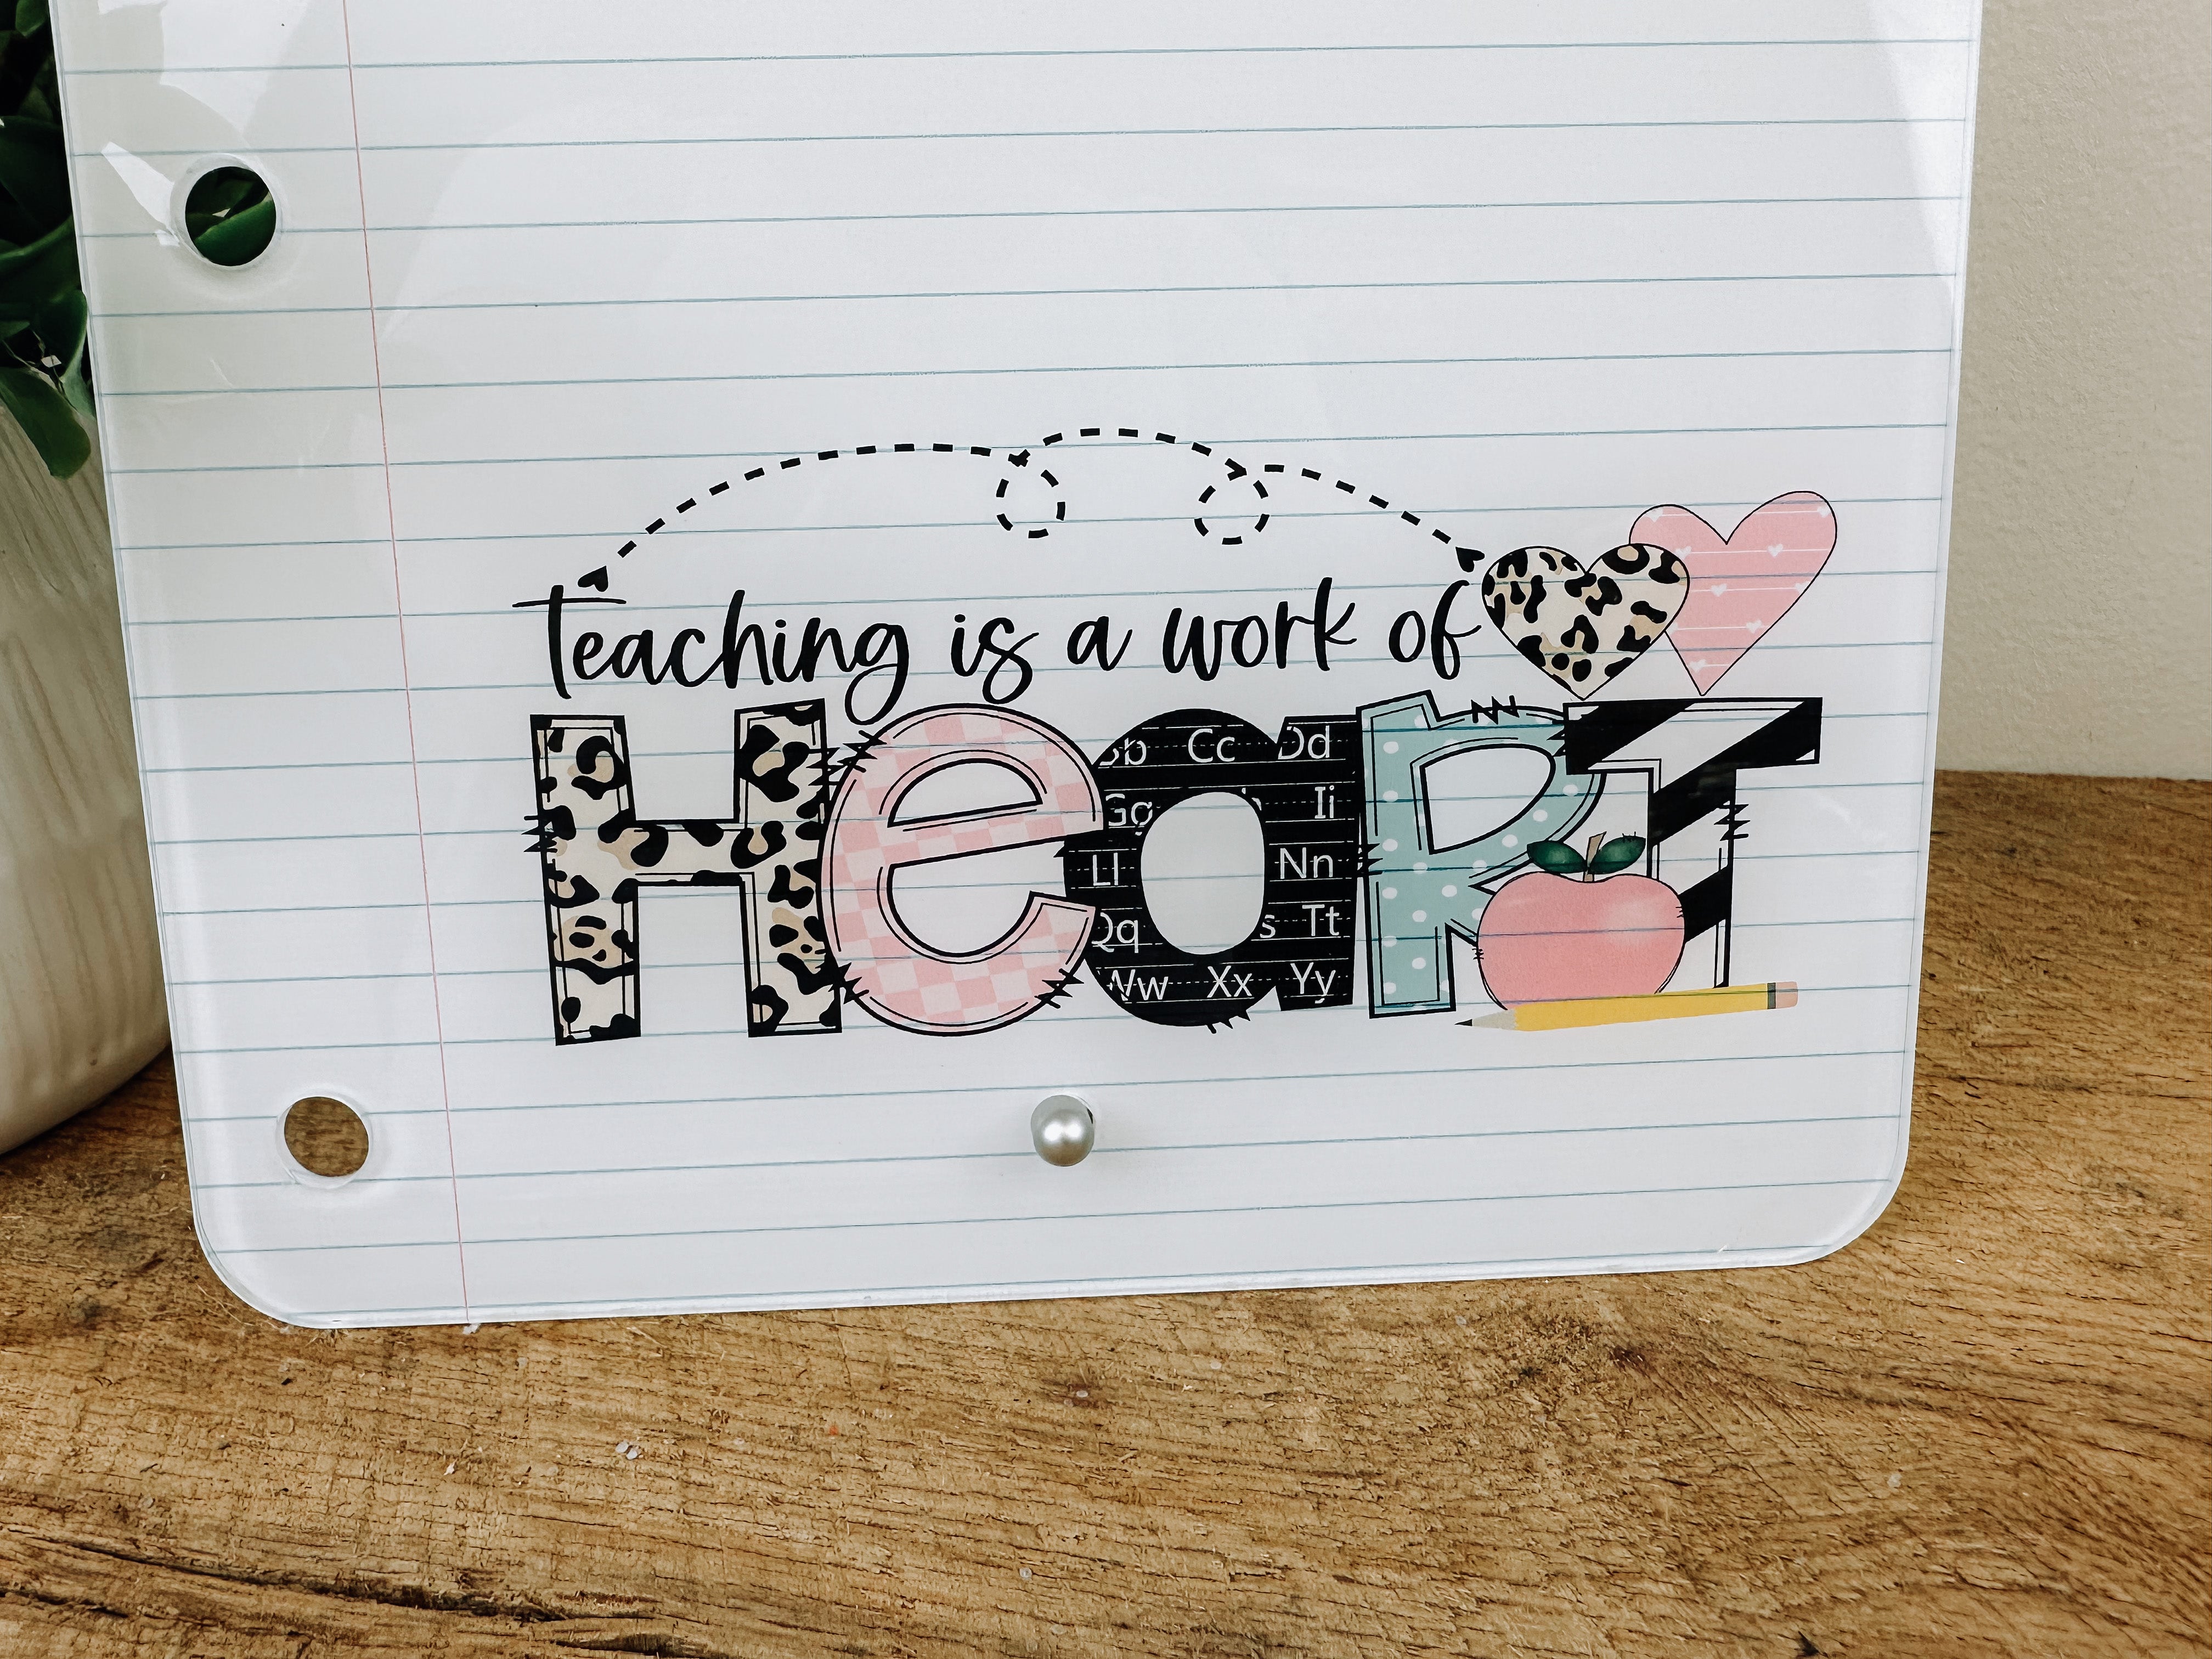 Teaching is a work of
HeaRT
Bb Cc Dd
Gg Ii
Ll Nn
Qq s Tt
Ww Xx Yy